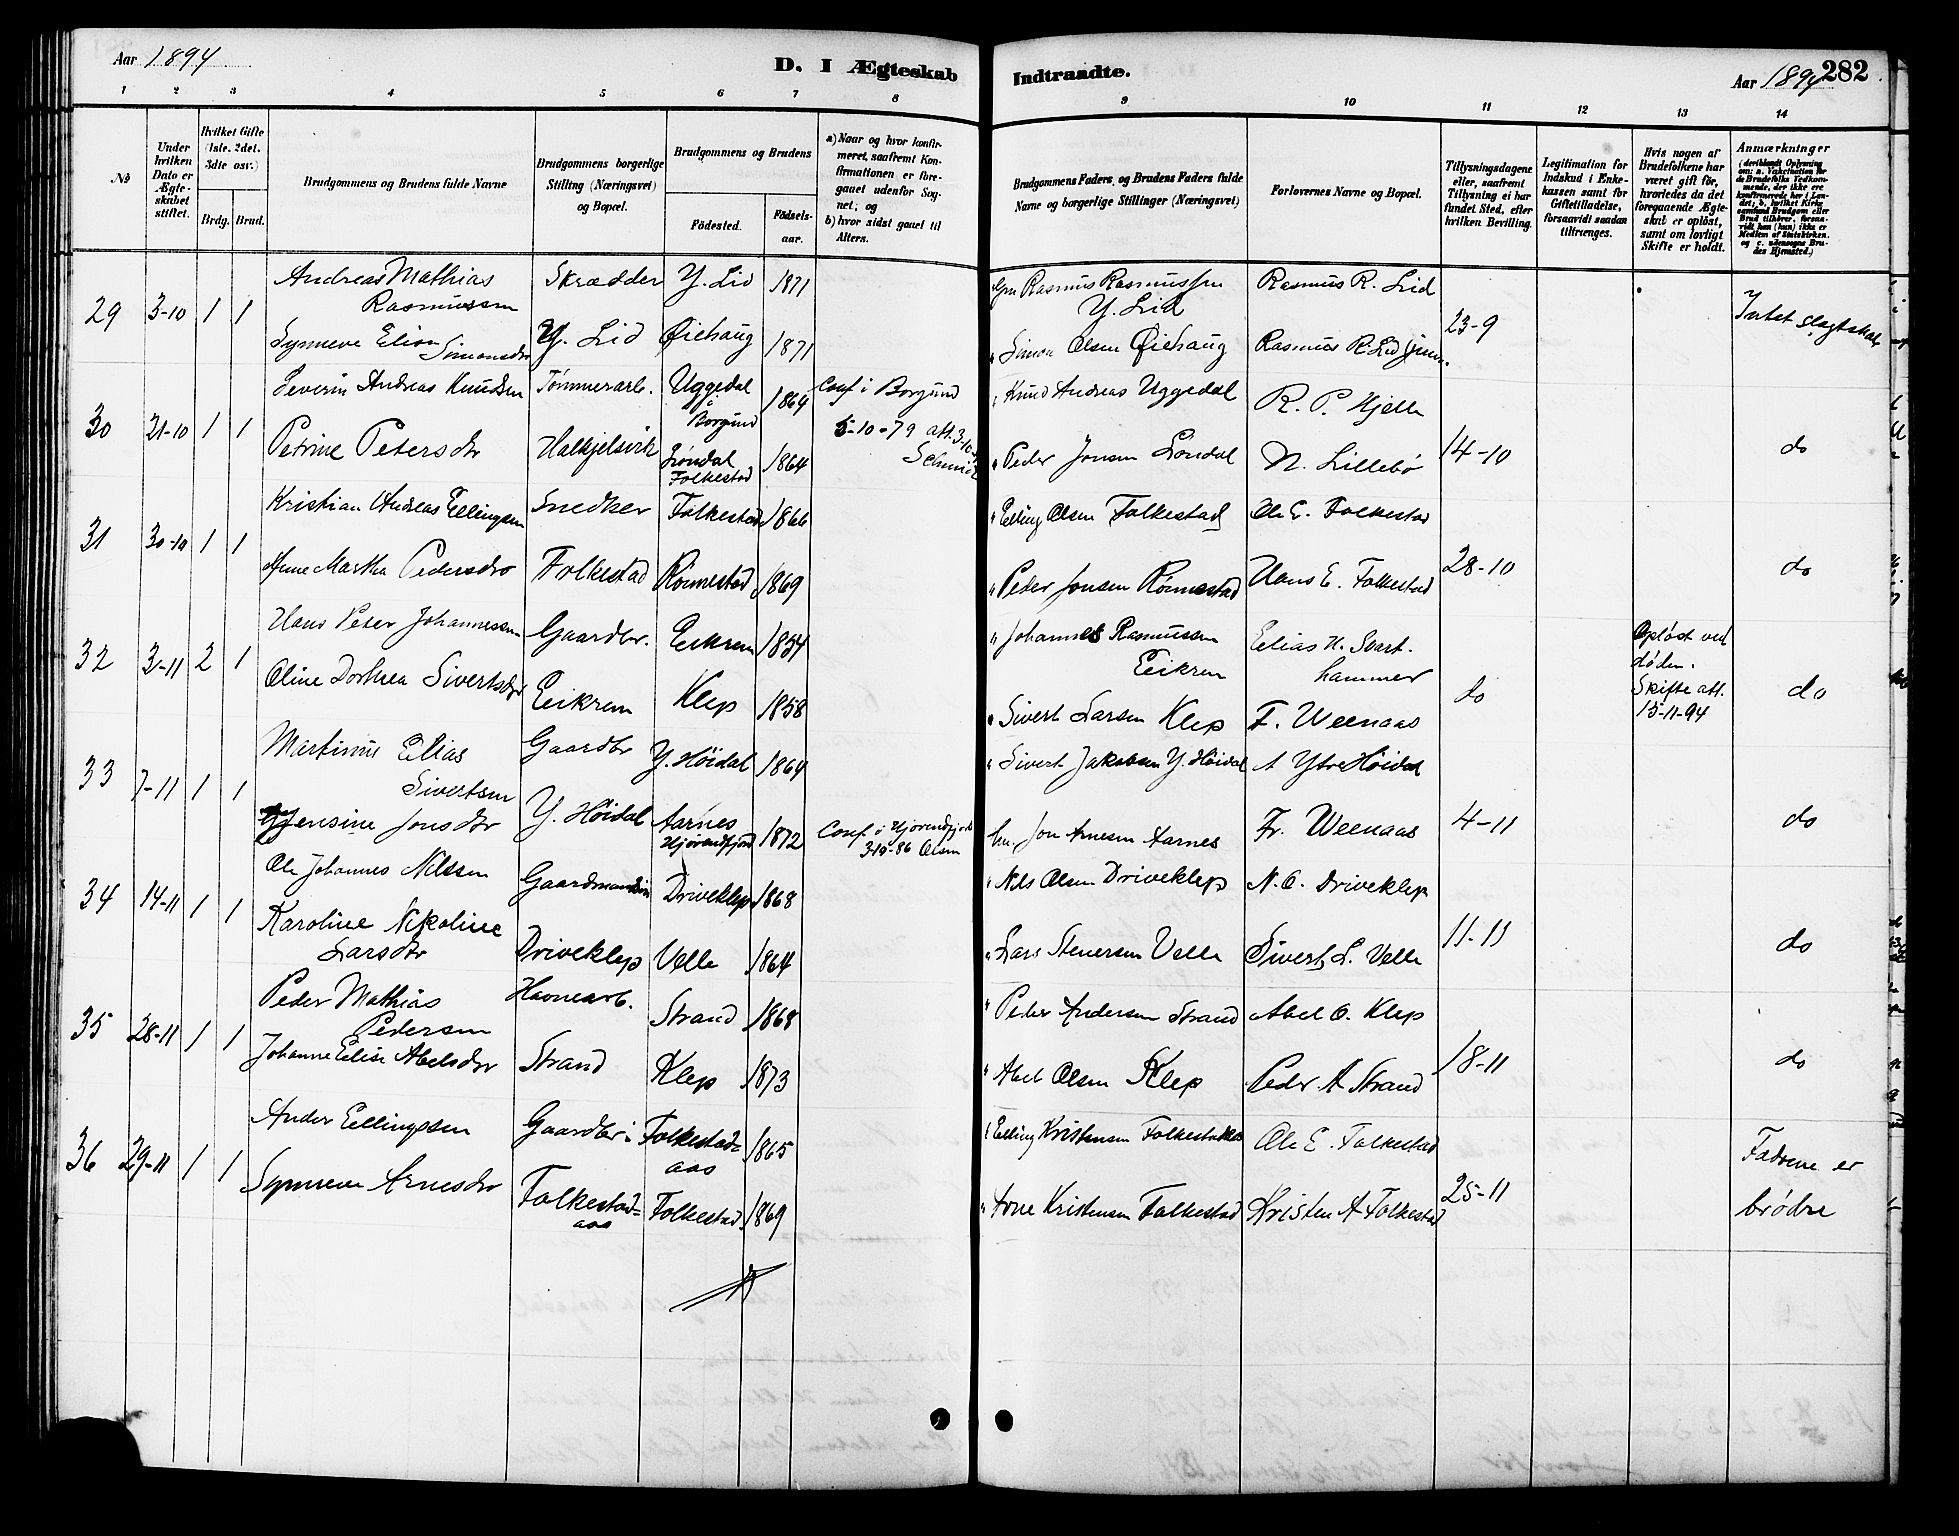 Aar 1894
D. I Ægteskab
Indtraadte.
Aar 1894
282
1 2 3 4 5 6 7 8 9 10 11 12 13 14
No
Under hvilken Dato er Ægteskabet stiftet.
Hvilket Gifte (1ste, 2det, 3die osv.)
Brdg. Brud.
Brudgommens og Brudens fulde Navne
Brudgommens borgerlige Stilling (Næringsvei) og Bopæl.
Brudgommens og Brudens
Fødested.
Fødselsaar.
a) Naar og hvor konfirmeret, saafremt Konfirmationen er foregaaet udenfor Sognet; og
b) hvor sidst gaaet til Alters.
Brudgommens Faders, og Brudens Faders fulde Navne og borgerlige Stillinger (Næringsvei)
Forlovernes Navne og Bopæl.
Tillysningsdagene eller, saafremt Tillysning ei har fundet Sted, efter hvilken Bevilling.
Legitimation for Indskud i Enkekassen samt for Giftetilladelse, forsaavidt saadan tiltrænges.
Hvis nogen af Brudefolkene har været gift før, hvorledes da det foregaaende Ægteskab er opløst, samt om lovligt Skifte er holdt.
Anmærkninger
(deriblandt Oplysning om: a. Vakcination for de Brudefolks Vedkommende, der ikke ere konfirmerede her i Landet; b. hvilket Kirkesamfund Brudgom eller Brud tilhører, forsaavidt han (hun) ikke er Medlem af Statskirken, og c. udensogns Brudes Hjemsted.)
29 3-10 1 1
Andreas Mathias Rasmussen Skrædder Y. Lid 1871 Rasmus Rasmussen Y. Lid Rasmus R. Lid
Synneve Elion Simonsdtr Y. Lid Øiehaug 1871 Simon Olsen Øiehaug Rasmus R. Lid 23-9 Intet slægtskab
30 21-10 1 1
Severin Andreas Knudsen Tømmerarb. Uggedal i Borgund 1864 Conf i Borgund 5-10-79 att. 3-10 Knud Andreas Uggedal R. P. Hjelle
Petrine Petersdtr Halkjelsvik Folkestad 1864 Peder Jonsen N. Lillebø 14-10 do
31 30-10 1 1
Kristian Andreas Ellingsen Snedker Folkestad 1866 Elling Olsen Folkestad Ole E. Folkestad
Anne Martha Pedersdtr Folkestad Rønnestad 1869 Peder Jonsen Rønnestad Hans E. Folkestad 28-10 do
32 3-11 2 1
Hans Peter Johannessen Gaardbr. Eikrem 1854 Johannes Rasmussen Eikrem Elias H. Svarthammer Opløst ved døden.
Oline Dorthea Sivertsdtr Eikrem Klep 1858 Sivert Larsen Klep F. Weenaas do Skifte att. 15-11-94 do
33 7-11 1 1
Martinus Elias Sivertsen Gaardbr Y. Høidal 1864 Sivert Jakobsen Y. Høidal A Ytre Høidal
Jensine Jonsdtr Y. Høidal Aarnes Hjørendfjord 1872 Conf. i Hjørendfjord 3-10-86 Olsen Jon Arnesen Aarnes Fr. Weenaas 4-11 do
34 14-11 1 1
Ole Johannes Nilssen Driveklep 1868 Nils Olsen Driveklep N. O. Driveklep
Karoline Nikoline Larsdtr Driveklep Velle 1864 Lars Steversen Velle Sivert L. Velle 11-11 do
35 28-11 1 1
Peder Mathias Pedersen Havnearb. Strand 1868 Peder Andersen Strand Abel O. Klep
Johanne Elise Abelsdtr Strand Klep 1873 Abel Olsen Klep Peder A Strand 18-11 do
36 29-11 1 1
Anders Ellingsen Gaardbr i Folkestadaas 1865 Elling Kristensen Folkestadaas Ole E. Folkestad
Synneve Arnesdtr Folkestadaas Folkestad 1869 Arne Kristensen Folkestad Kristen A Folkestad 25-11 Fædrene er brødre